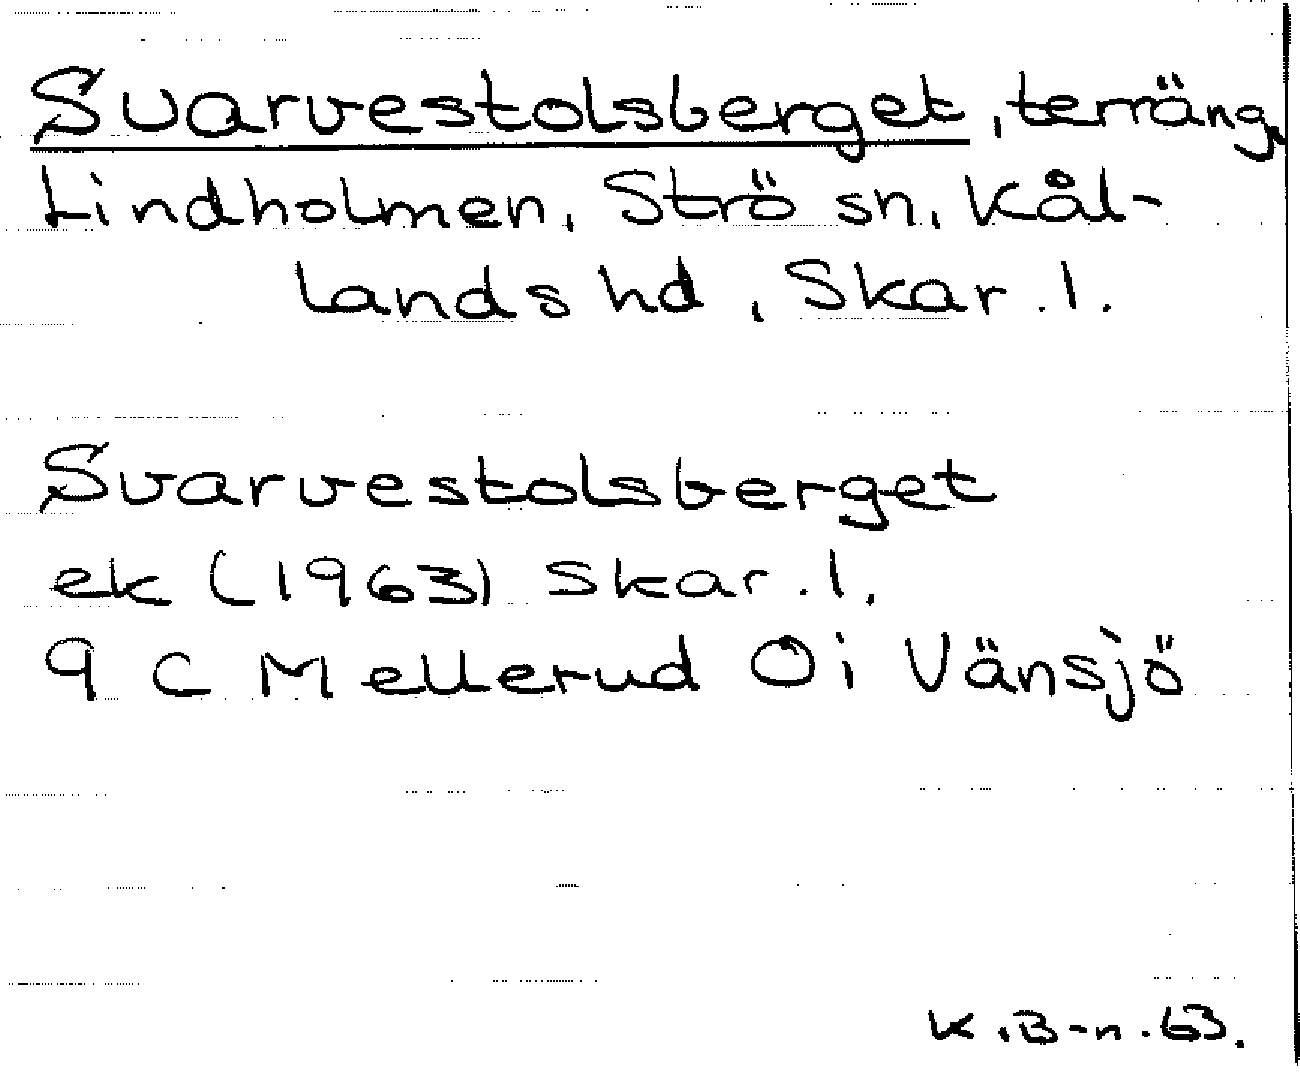 Svarvestolsberget, terräng,
Lindholmen, Strö sn, Kål-
lands hd, Skar. l.
Svarvestolsberget
ek (1963) Skar. l.
9 C Mellerud Öi Vänsjö
K.B-n. 63.